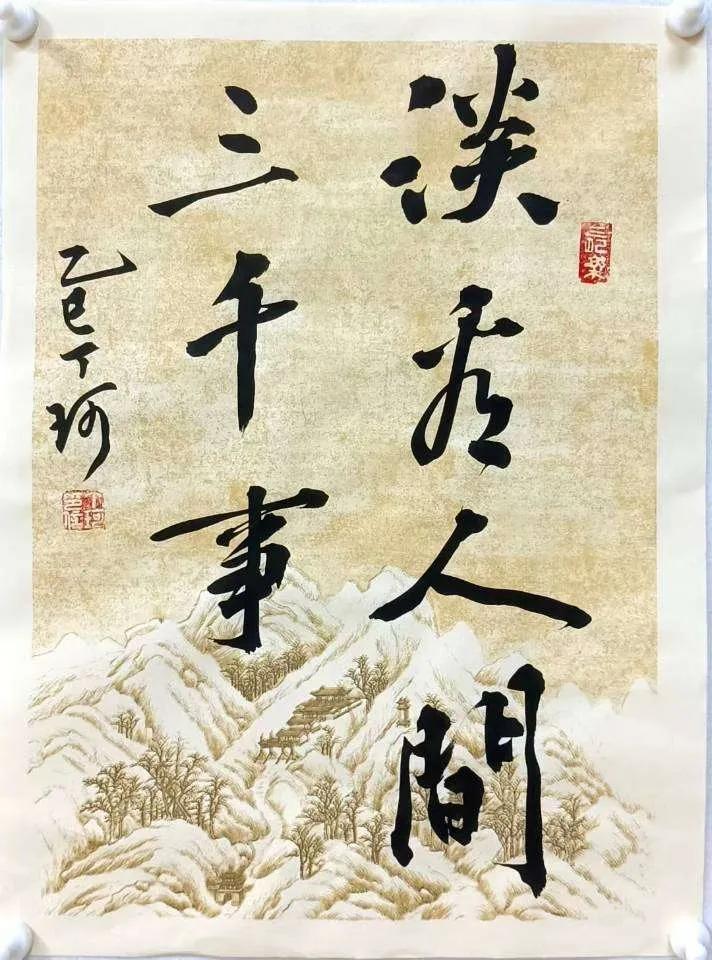 淡看人間
三千事
乙巳丁珂